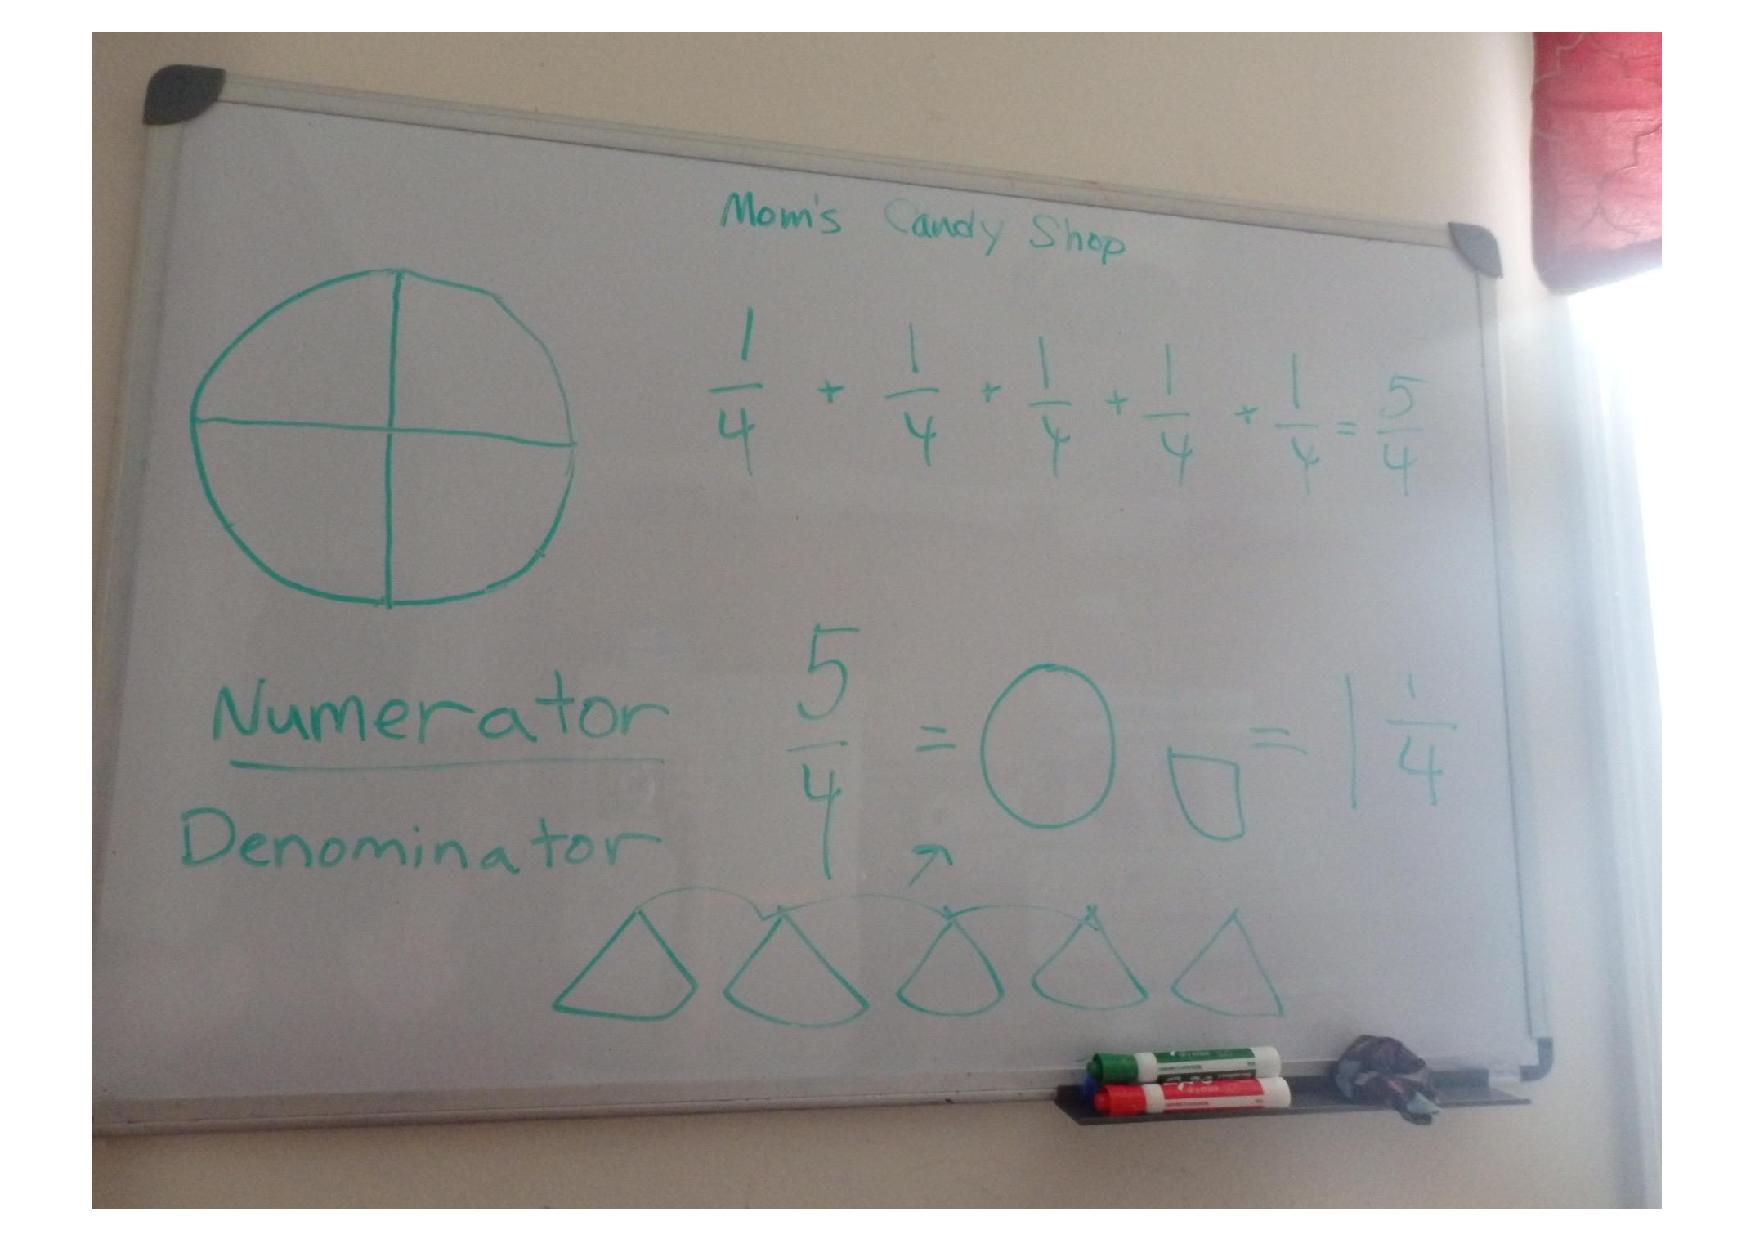 Mom's Candy Shop
1/4 + 1/4 + 1/4 + 1/4 + 1/4 = 5/4
Numerator
Denominator
5/4 = = 1 1/4